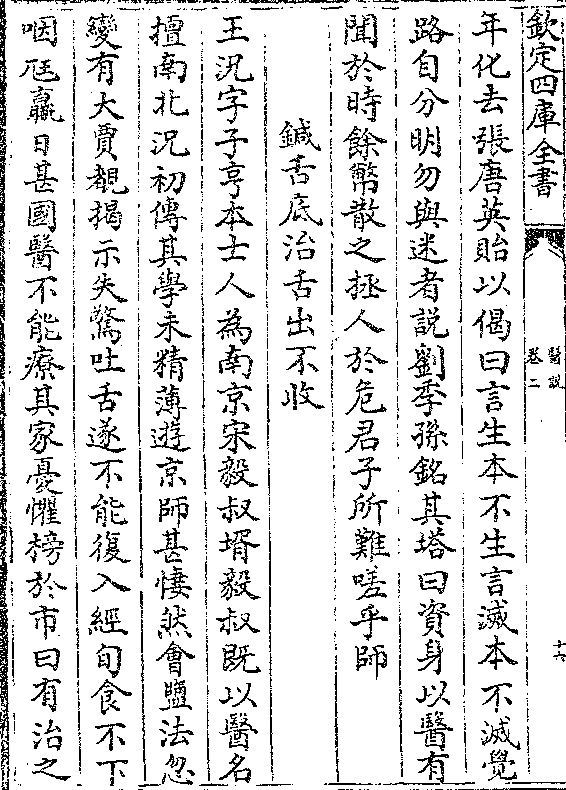 欽定四庫全書
醫說
卷二
十六
年化去張唐英貽以偈曰言生本不生言滅本不滅覺
路自分明勿與迷者說劉季孫銘其塔曰資身以醫有
聞於時餘幣散之拯人於危君子所難嗟乎師
鍼舌底治舌出不收
王況字子亨本士人為南京宋毅叔壻毅叔既以醫名
擅南北況初傳其學未精薄遊京師甚悽然會鹽法忽
變有大賈覩揭示失驚吐舌遂不能復入經旬食不下
咽尫羸日甚國醫不能療其家憂懼榜於市曰有治之